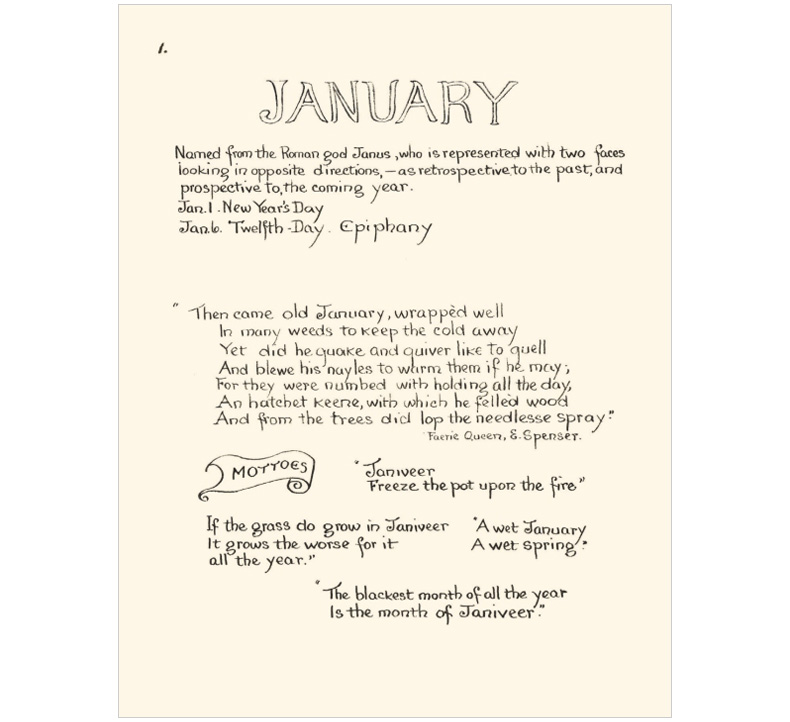 1.
JANUARY
Named from the Roman god Janus, who is represented with two faces
looking in opposite directions, — as retrospective to the past, and
prospective to, the coming year.
Jan. 1. New Year's Day
Jan. 6. Twelfth-Day. Epiphany
" Then came old January, wrappèd well
In many weeds to keep the cold away
Yet did he quake and quiver like to quell
And blewe his nayles to warm them if he may;
For they were numbed with holding all the day,
An hatchet keene, with which he felled wood
And from the trees did lop the needlesse spray."
Faerie Queen, E. Spenser.
MOTTOES
"Janiveer
Freeze the pot upon the fire"
If the grass do grow in Janiveer
It grows the worse for it
all the year."
"A wet January
A wet spring".
"The blackest month of all the year
Is the month of Janiveer".